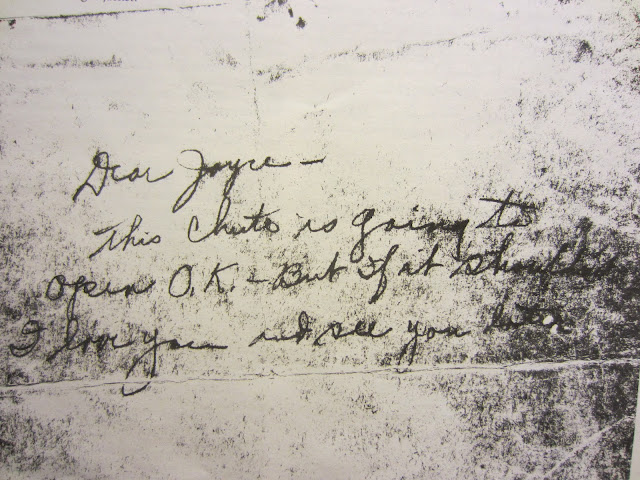 Dear Joyce —
This Chute is going to
open O.K. — But if it should
I love you and see you later